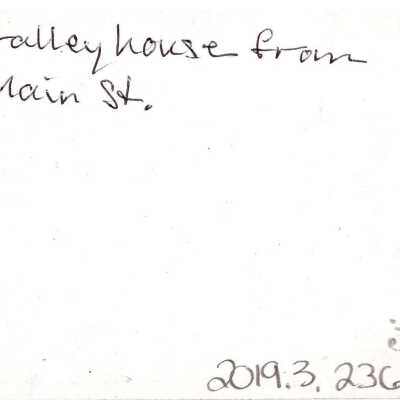 alleyhouse from
Main St.
2019.3.236